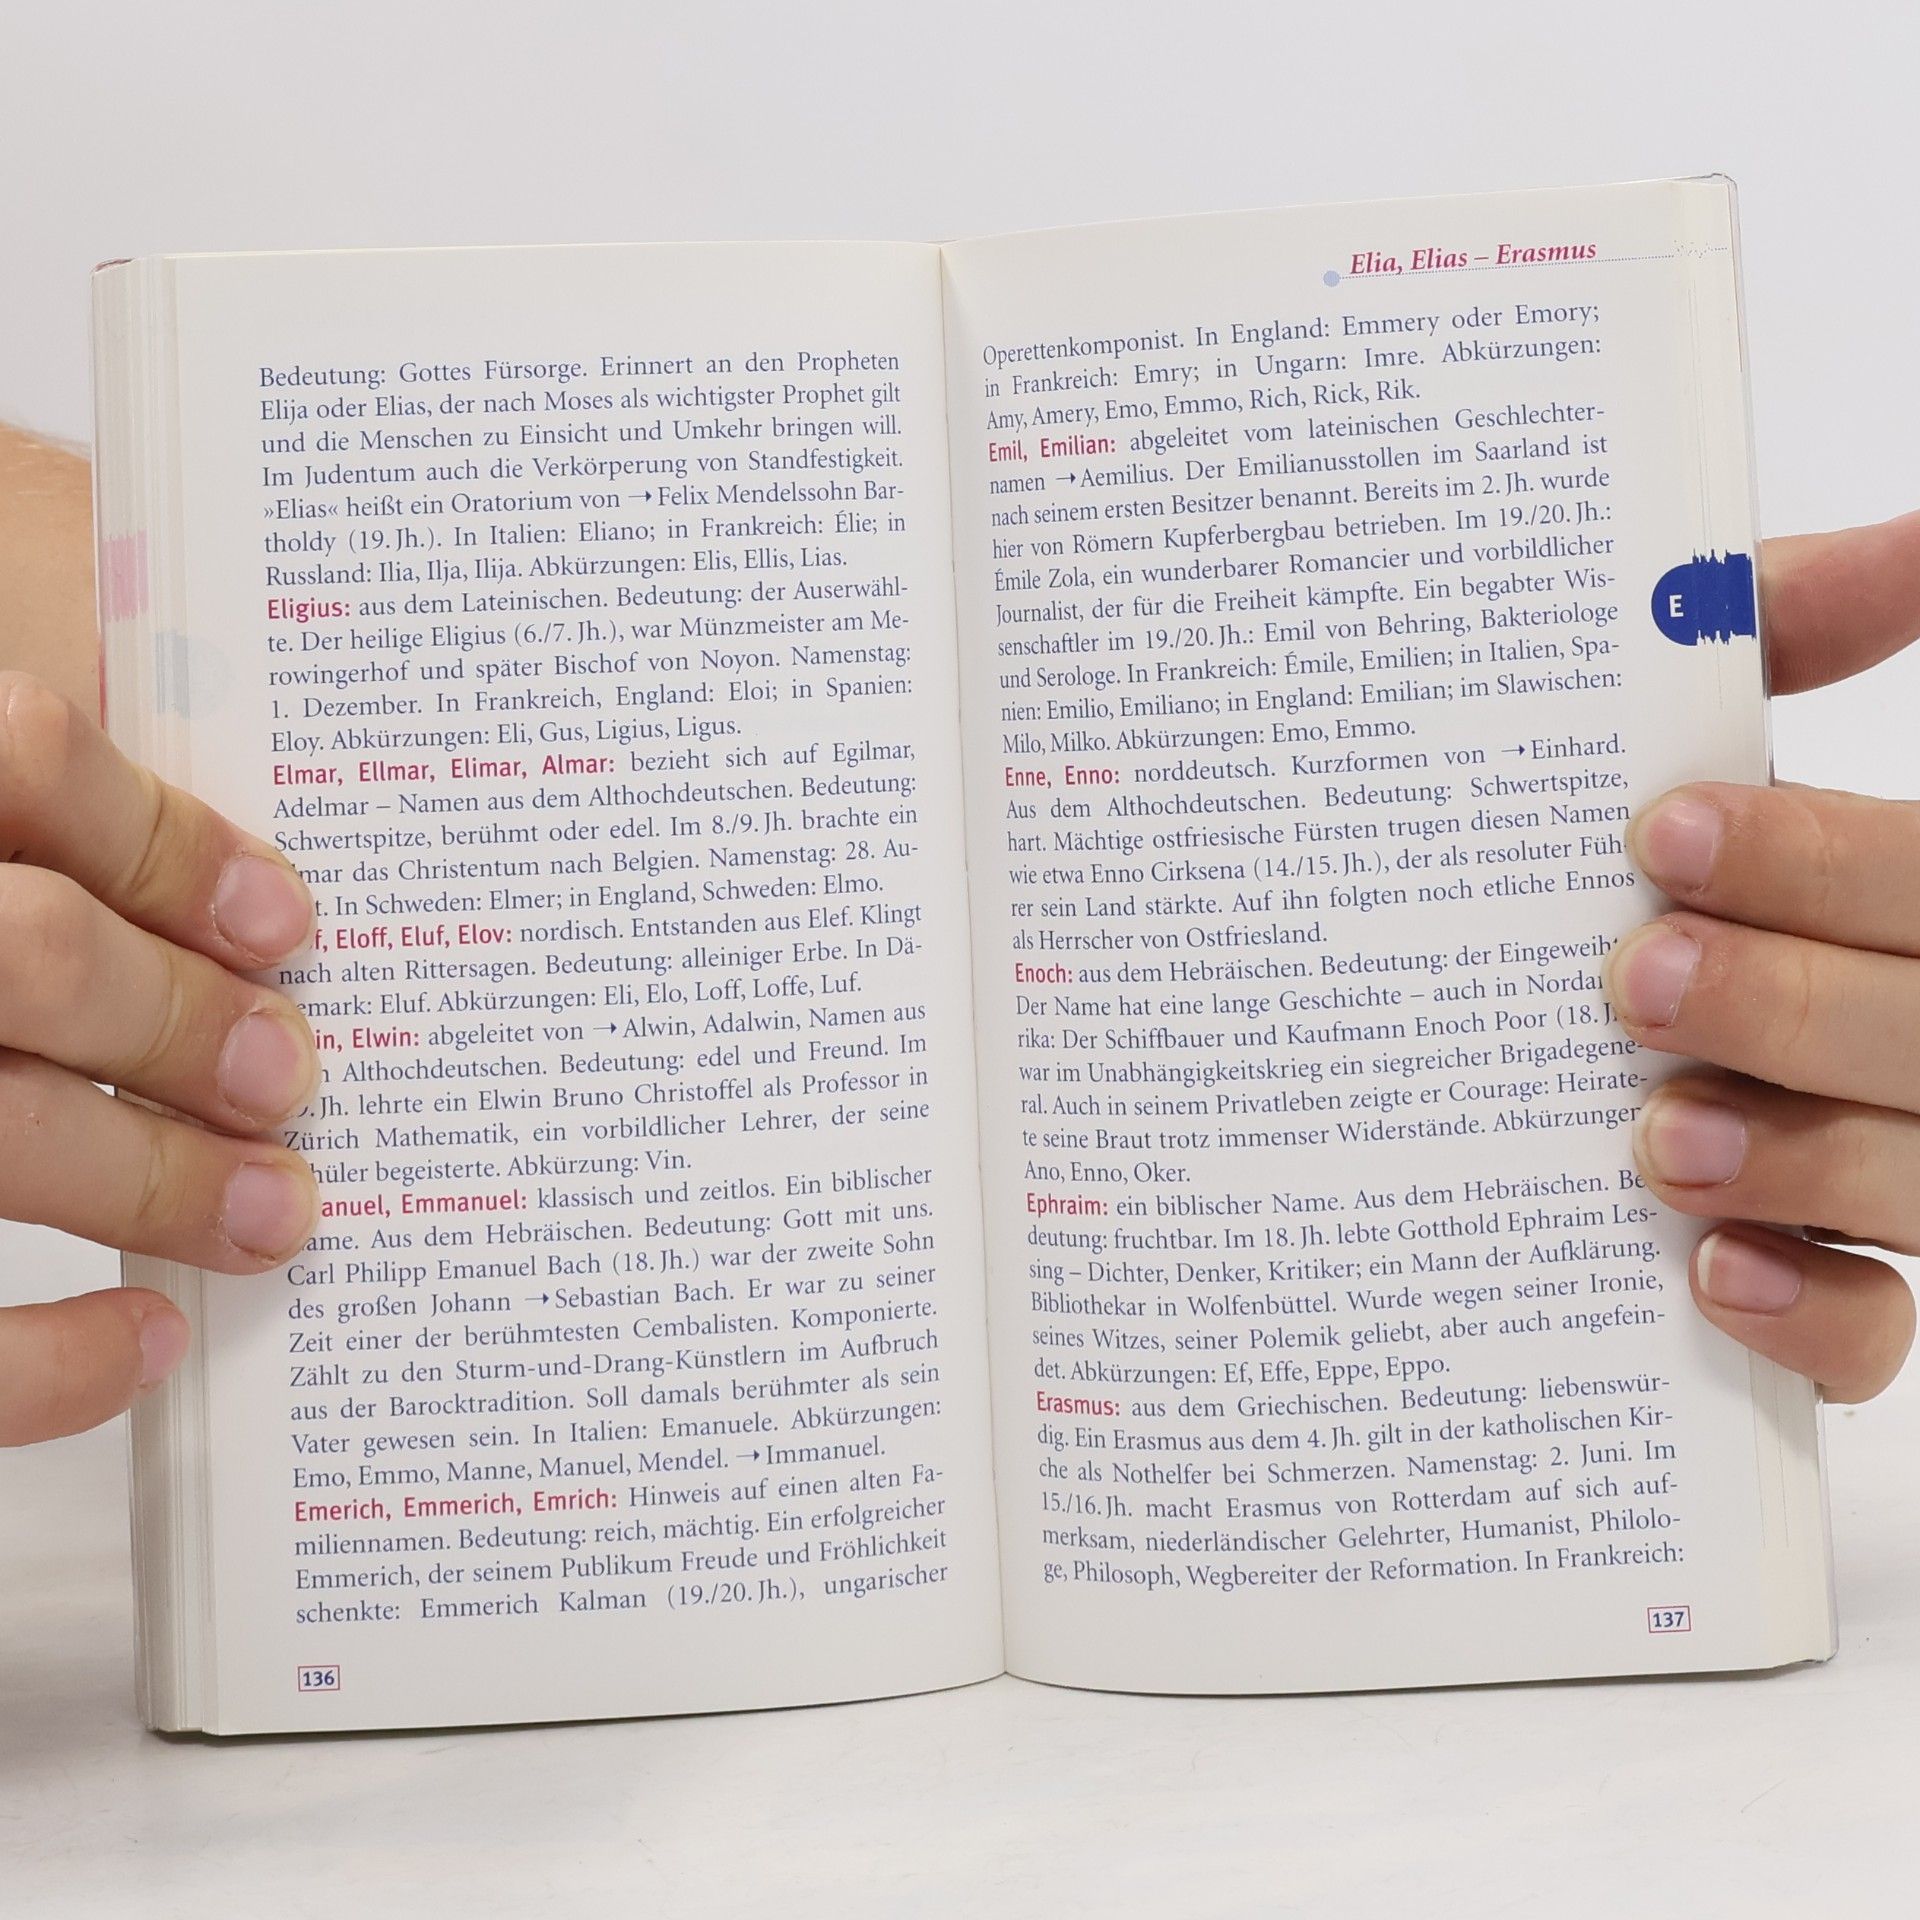 Bedeutung: Gottes Fürsorge. Erinnert an den Propheten
Elija oder Elias, der nach Moses als wichtigster Prophet gilt
und die Menschen zu Einsicht und Umkehr bringen will.
Im Judentum auch die Verkörperung von Standfestigkeit.
»Elias« heißt ein Oratorium von → Felix Mendelssohn Bar-
tholdy (19. Jh.). In Italien: Eliano; in Frankreich: Élie; in
Russland: Ilia, Ilja, Ilija. Abkürzungen: Elis, Ellis, Lias.
Eligius: aus dem Lateinischen. Bedeutung: der Auserwähl-
te. Der heilige Eligius (6./7. Jh.), war Münzmeister am Me-
rowingerhof und später Bischof von Noyon. Namenstag:
1. Dezember. In Frankreich, England: Eloi; in Spanien:
Eloy. Abkürzungen: Eli, Gus, Ligius, Ligus.
Elmar, Ellmar, Elimar, Almar: bezieht sich auf Egilmar,
Adelmar – Namen aus dem Althochdeutschen. Bedeutung:
Schwertspitze, berühmt oder edel. Im 8./9. Jh. brachte ein
das Christentum nach Belgien. Namenstag: 28. Au-
In Schweden: Elmer; in England, Schweden: Elmo.
Eloff, Eluf, Elov: nordisch. Entstanden aus Elef. Klingt
nach alten Rittersagen. Bedeutung: alleiniger Erbe. In Dä-
emark: Eluf. Abkürzungen: Eli, Elo, Loff, Loffe, Luf.
Elwin: abgeleitet von → Alwin, Adalwin, Namen aus
Althochdeutschen. Bedeutung: edel und Freund. Im
Jh. lehrte ein Elwin Bruno Christoffel als Professor in
Zürich Mathematik, ein vorbildlicher Lehrer, der seine
hüler begeisterte. Abkürzung: Vin.
anuel, Emmanuel: klassisch und zeitlos. Ein biblischer
ame. Aus dem Hebräischen. Bedeutung: Gott mit uns.
Carl Philipp Emanuel Bach (18. Jh.) war der zweite Sohn
des großen Johann → Sebastian Bach. Er war zu seiner
Zeit einer der berühmtesten Cembalisten. Komponierte.
Zählt zu den Sturm-und-Drang-Künstlern im Aufbruch
aus der Barocktradition. Soll damals berühmter als sein
Vater gewesen sein. In Italien: Emanuele. Abkürzungen:
Emo, Emmo, Manne, Manuel, Mendel. → Immanuel.
Emerich, Emmerich, Emrich: Hinweis auf einen alten Fa-
miliennamen. Bedeutung: reich, mächtig. Ein erfolgreicher
Emmerich, der seinem Publikum Freude und Fröhlichkeit
schenkte: Emmerich Kalman (19./20. Jh.), ungarischer
136
Elia, Elias – Erasmus
Operettenkomponist. In England: Emmery oder Emory;
in Frankreich: Emry; in Ungarn: Imre. Abkürzungen:
Amy, Amery, Emo, Emmo, Rich, Rick, Rik.
Emil, Emilian: abgeleitet vom lateinischen Geschlechter-
namen → Aemilius. Der Emilianusstollen im Saarland ist
nach seinem ersten Besitzer benannt. Bereits im 2. Jh. wurde
hier von Römern Kupferbergbau betrieben. Im 19./20. Jh.:
Émile Zola, ein wunderbarer Romancier und vorbildlicher
Journalist, der für die Freiheit kämpfte. Ein begabter Wis-
senschaftler im 19./20. Jh.: Emil von Behring, Bakteriologe
und Serologe. In Frankreich: Émile, Emilien; in Italien, Spa-
nien: Emilio, Emiliano; in England: Emilian; im Slawischen:
Milo, Milko. Abkürzungen: Emo, Emmo.
Enne, Enno: norddeutsch. Kurzformen von → Einhard.
Aus dem Althochdeutschen. Bedeutung: Schwertspitze,
hart. Mächtige ostfriesische Fürsten trugen diesen Namen
wie etwa Enno Cirksena (14./15. Jh.), der als resoluter Füh-
rer sein Land stärkte. Auf ihn folgten noch etliche Ennos
als Herrscher von Ostfriesland.
Enoch: aus dem Hebräischen. Bedeutung: der Eingeweih
Der Name hat eine lange Geschichte – auch in Norda
rika: Der Schiffbauer und Kaufmann Enoch Poor (18. J
war im Unabhängigkeitskrieg ein siegreicher Brigadegene-
ral. Auch in seinem Privatleben zeigte er Courage: Heirate-
te seine Braut trotz immenser Widerstände. Abkürzungen
Ano, Enno, Oker.
Ephraim: ein biblischer Name. Aus dem Hebräischen. Be
deutung: fruchtbar. Im 18. Jh. lebte Gotthold Ephraim Les-
sing – Dichter, Denker, Kritiker; ein Mann der Aufklärung.
Bibliothekar in Wolfenbüttel. Wurde wegen seiner Ironie,
seines Witzes, seiner Polemik geliebt, aber auch angefein-
det. Abkürzungen: Ef, Effe, Eppe, Eppo.
Erasmus: aus dem Griechischen. Bedeutung: liebenswür-
dig. Ein Erasmus aus dem 4. Jh. gilt in der katholischen Kir-
che als Nothelfer bei Schmerzen. Namenstag: 2. Juni. Im
15./16. Jh. macht Erasmus von Rotterdam auf sich auf-
merksam, niederländischer Gelehrter, Humanist, Philolo-
ge, Philosoph, Wegbereiter der Reformation. In Frankreich:
E
137